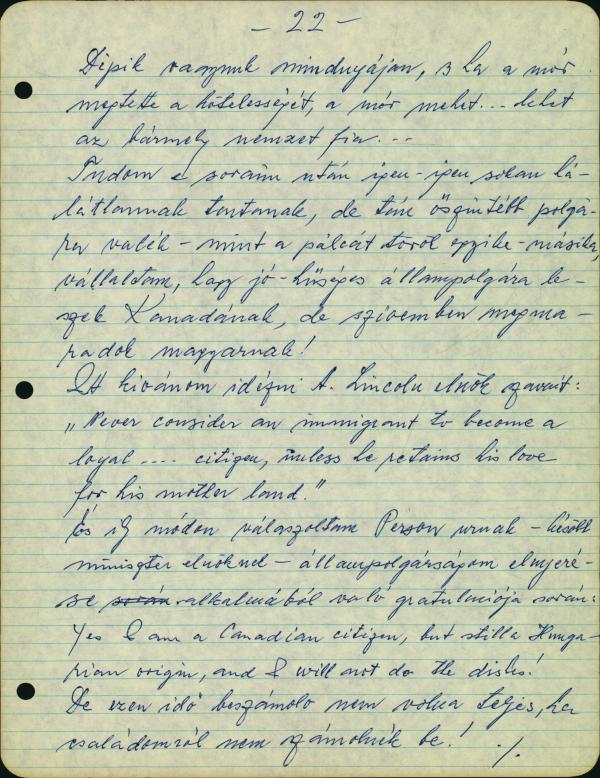 - 22 -
Dipik vagyunk mindnyájan, s ha a mór
megtette a kötelességét, a mór mehet... lehet
az bármely nemzet fia...
Tudom e soraim után igen-igen sokan
látlannak tartanak, de tán őszintébb polgá-
ra valék - mint a pálcát töröl egyike-másika,
vállaltam, hogy jó-hűséges állampolgára le-
szek Kanadának, de szivemben megma-
radok magyarnak!
Itt kivánom idézni A. Lincoln elnök szavait:
„Never consider an immigrant to become a
loyal .... citizen, unless he retains his love
for his mother land."
És így módon válaszoltam Person urnak - később
miniszter elnöknek - állampolgárságom elnyeré-
se során alkalmából való gratulációja során:
Yes I am a Canadian citizen, but still a Hunga-
rian origin, and I will not do the dishes!
De ezen idő beszámoló nem volna teljes, ha
családomról nem számolnék be! ./.